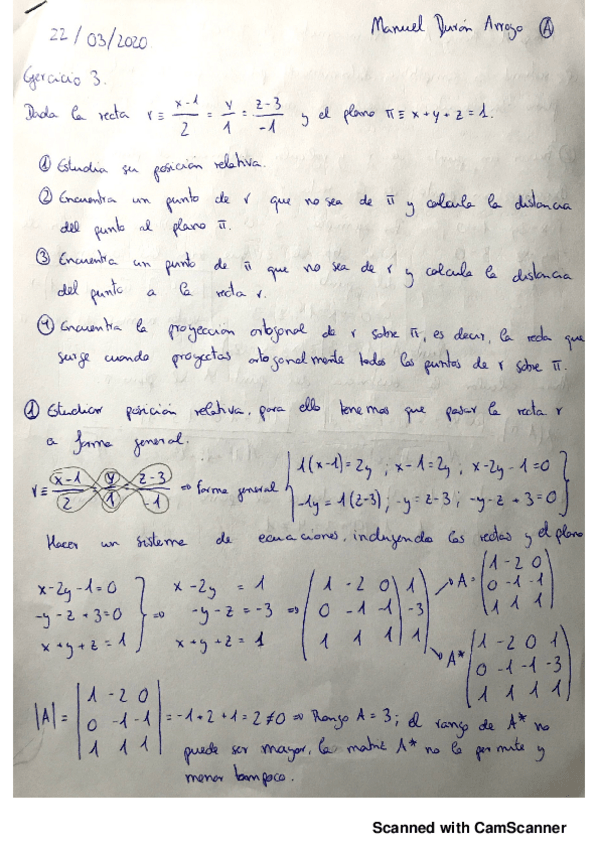 22/03/2020
Manuel Durán Arroyo Ⓐ
Ejercicio 3.
Dada la recta r ≡ x-1/2 = y/1 = z-3/-1 y el plano π ≡ x+y+z=1.
① Estudia su posición relativa.
② Encuentra un punto de r que no sea de π y calcula la distancia
del punto al plano π.
③ Encuentra un punto de π que no sea de r y calcula la distancia
del punto a la recta r.
④ Encuentra la proyección ortogonal de r sobre π, es decir, la recta que
surge cuando proyectas ortogonalmente todos los puntos de r sobre π.
① Estudiar posición relativa, para ello tenemos que pasar la recta r
a forma general.
r ≡ x-1/2 = y/1 = z-3/-1 ⇒ forma general { 1(x-1)=2y ; x-1=2y , x-2y-1=0
-1y=1(z-3) ; -y=z-3 ; -y-z+3=0 }
Hacer un sistema de ecuaciones, incluyendo las rectas y el plano
x-2y-1=0 x-2y = 1 1 -2 0 1 A= 1 -2 0
-y-z+3=0 ⇒ -y-z=-3 ⇒ 0 -1 -1 -3 0 -1 -1
x+y+z=1 x+y+z=1 1 1 1 1 1 1 1
A* 1 -2 0 1
0 -1 -1 -3
1 1 1 1
|A| = 1 -2 0
0 -1 -1 = -1+2+1=2≠0 ⇒ Rango A=3; el rango de A* no
1 1 1 puede ser mayor, la matriz A* no lo permite y
menor tampoco.
Scanned with CamScanner